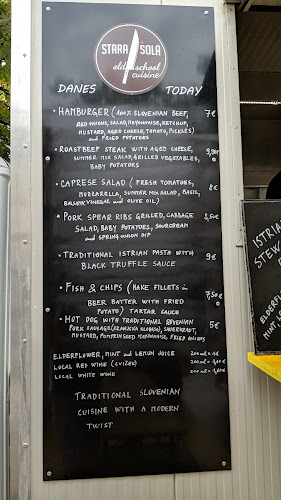 STARA ŠOLA
old school
cuisine
DANES TODAY
- HAMBURGER (100% SLOVENIAN BEEF, 7€
RED ONIONS, SALAD, MAYONNAISE, KETCHUP,
MUSTARD, AGED CHEESE, TOMATO, PICKLES)
AND FRIED POTATOES
- ROASTBEEF STEAK WITH AGED CHEESE,
SUMMER MIX SALAD, GRILLED VEGETABLES,
BABY POTATOES
- CAPRESE SALAD (FRESH TOMATOES, 8€
MOZZARELLA, SUMMER MIX SALAD, BASIL,
BALSAMIC VINEGAR AND OLIVE OIL)
- PORK SPEAR RIBS GRILLED, CABBAGE 8,50€
SALAD, BABY POTATOES, SOURCREAM
AND SPRING ONION DIP
- TRADITIONAL ISTRIAN PASTA WITH 9€
BLACK TRUFFLE SAUCE
- FISH & CHIPS (HAKE FILLETS in 7,50€
BEER BATTER WITH FRIED
POTATO) TARTAR SAUCE
- HOT DOG WITH TRADITIONAL SLOVENIAN 5€
PORK SAUSAGE (KRANJSKA KLOBASA), SAUERKRAUT,
MUSTARD, PUMPKINSEED MAYONNAISE, FRIED ONIONS
ELDERFLOWER, MINT AND LEMON JUICE 200ml
LOCAL RED WINE (CVIČEK) 200ml
LOCAL WHITE WINE 200ml
TRADITIONAL SLOVENIAN
CUISINE WITH A MODERN
TWIST
ISTRIAN
STEW
ELDERFLOWER
MINT